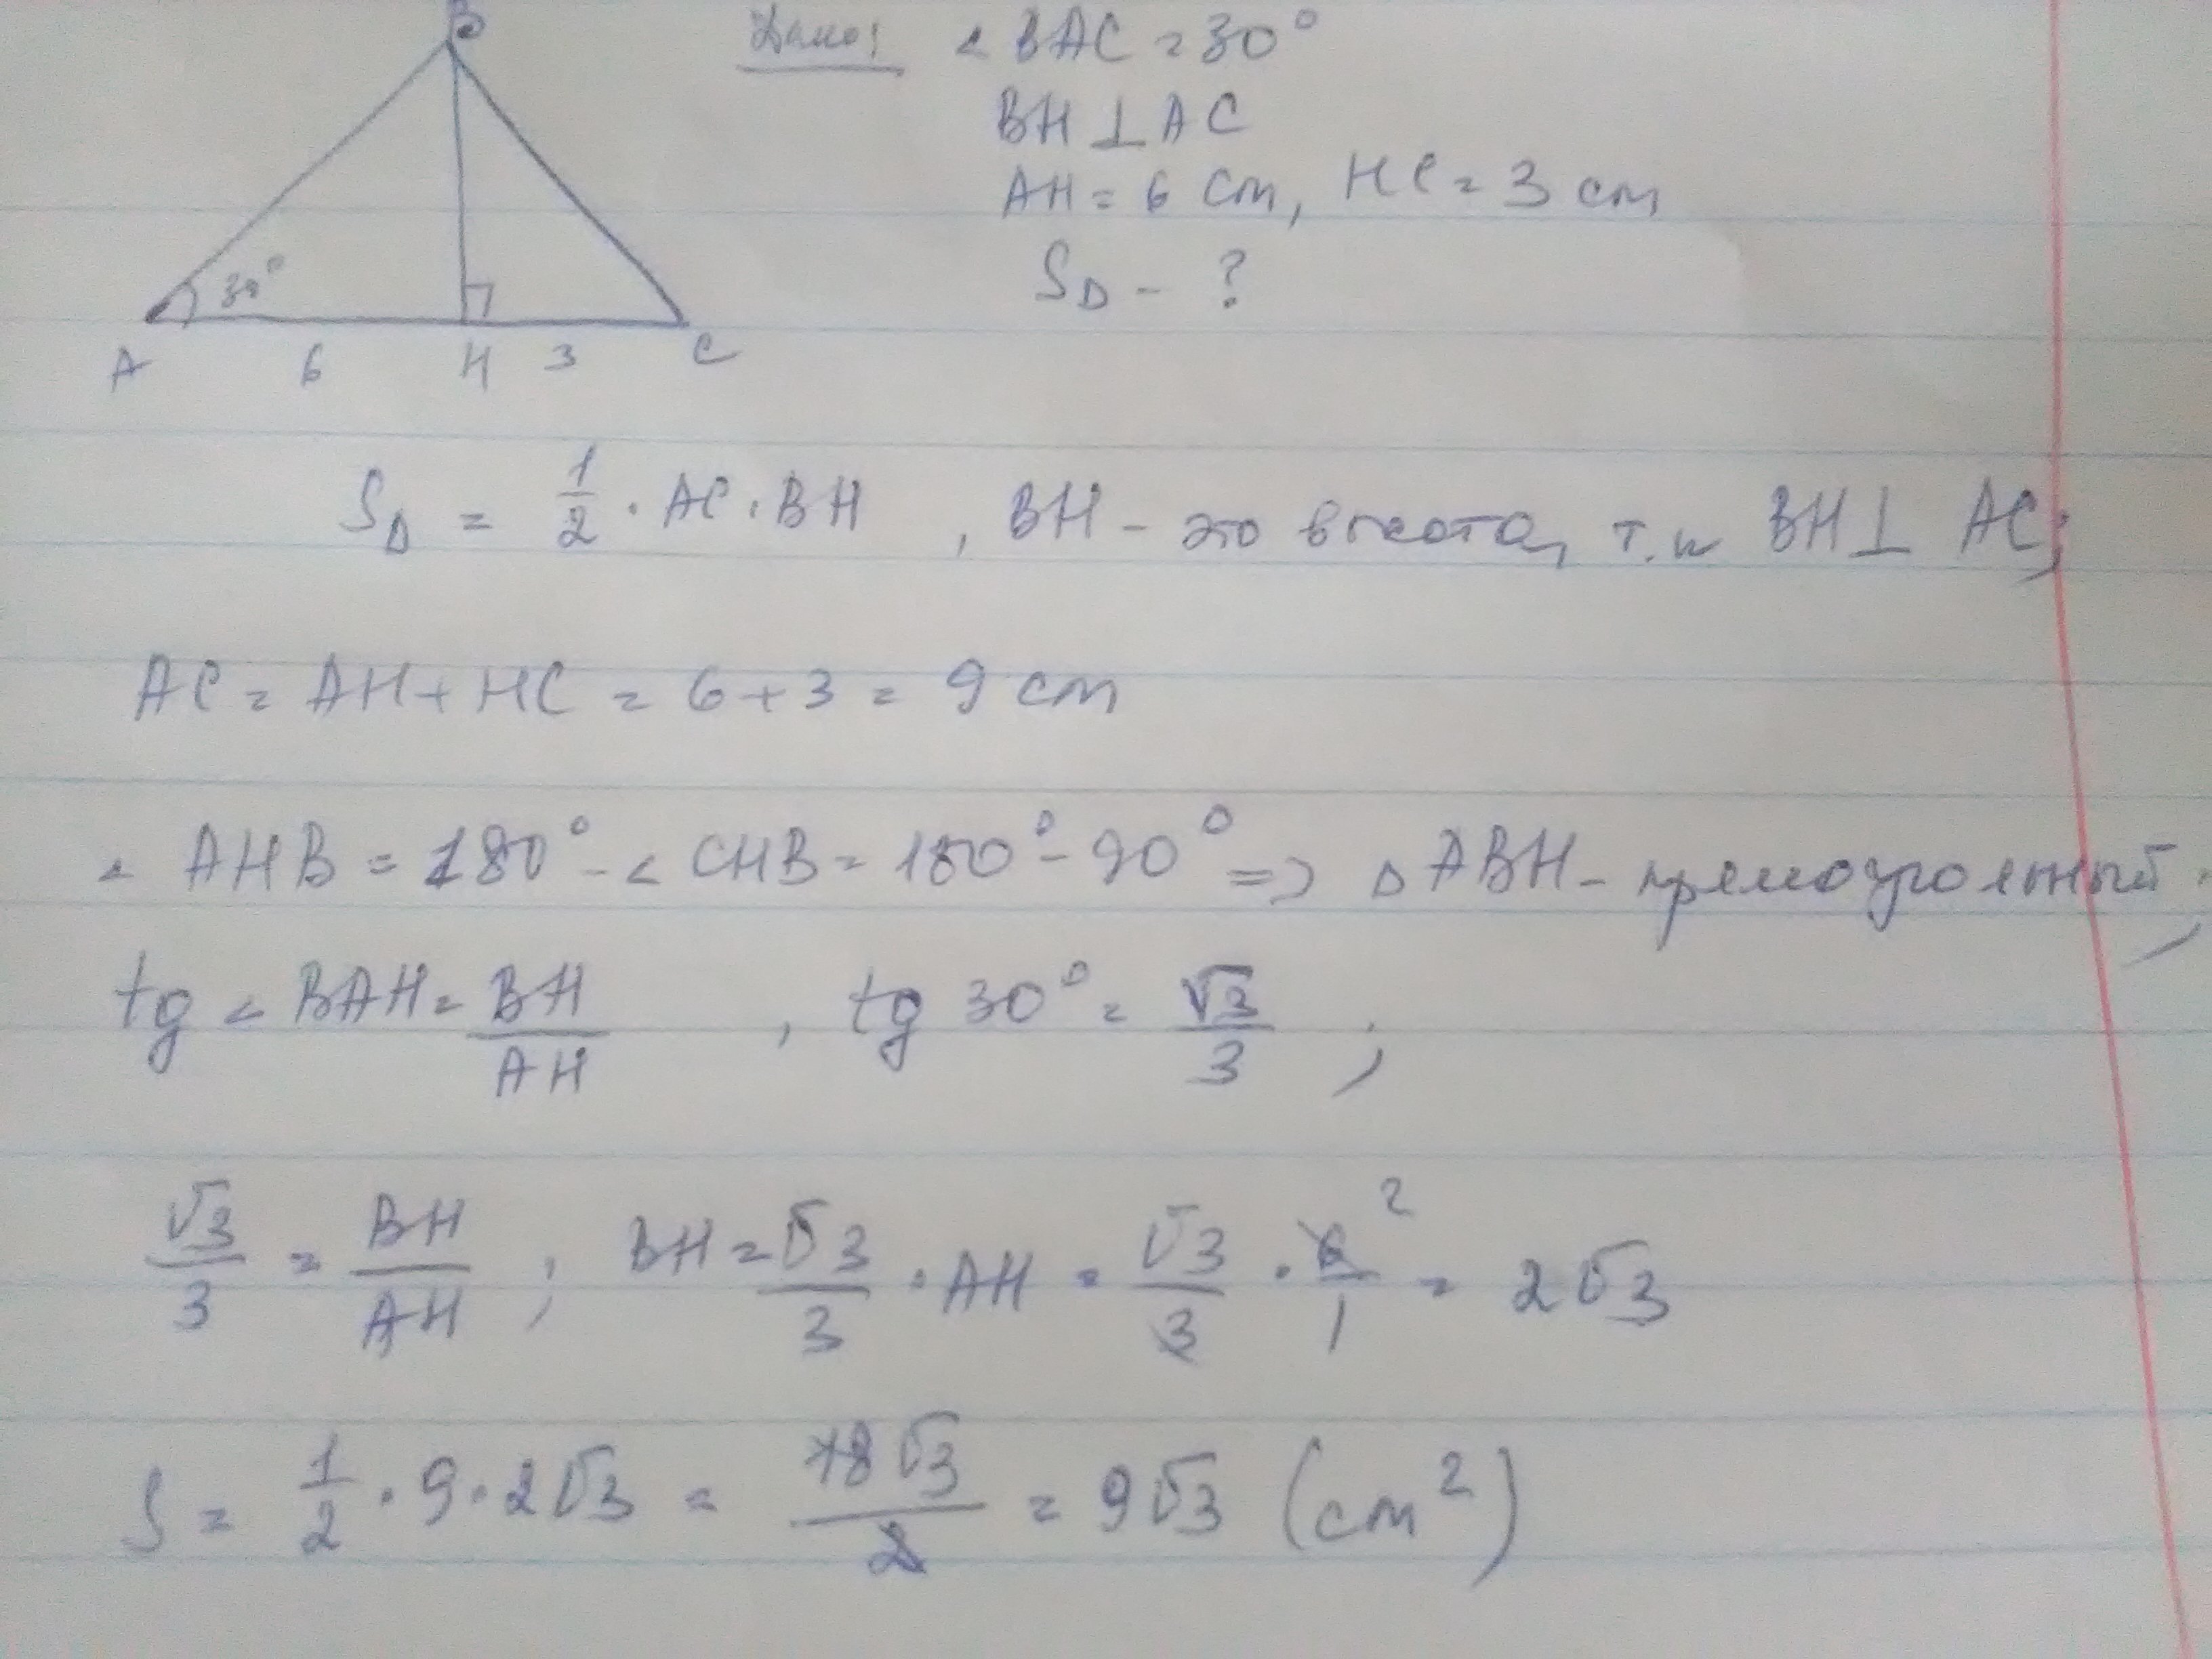 B
Дано: < BAC = 30°
BH ⊥ AC
AH = 6 cm, HC = 3 cm
S∆ - ?
30°
A 6 H 3 C
S∆ = 1/2 · AC · BH , BH - это высота, т.к BH ⊥ AC;
AC = AH + HC = 6 + 3 = 9 cm
< AHB = 180° - < CHB = 180° - 90° => ∆ ABH - прямоугольный;
tg < BAH = BH/AH , tg 30° = √3/3 ;
√3/3 = BH/AH ; BH = √3/3 · AH = √3/3 · 6/1 2 = 2√3
S = 1/2 · 9 · 2√3 = 18√3/2 = 9√3 (cm²)